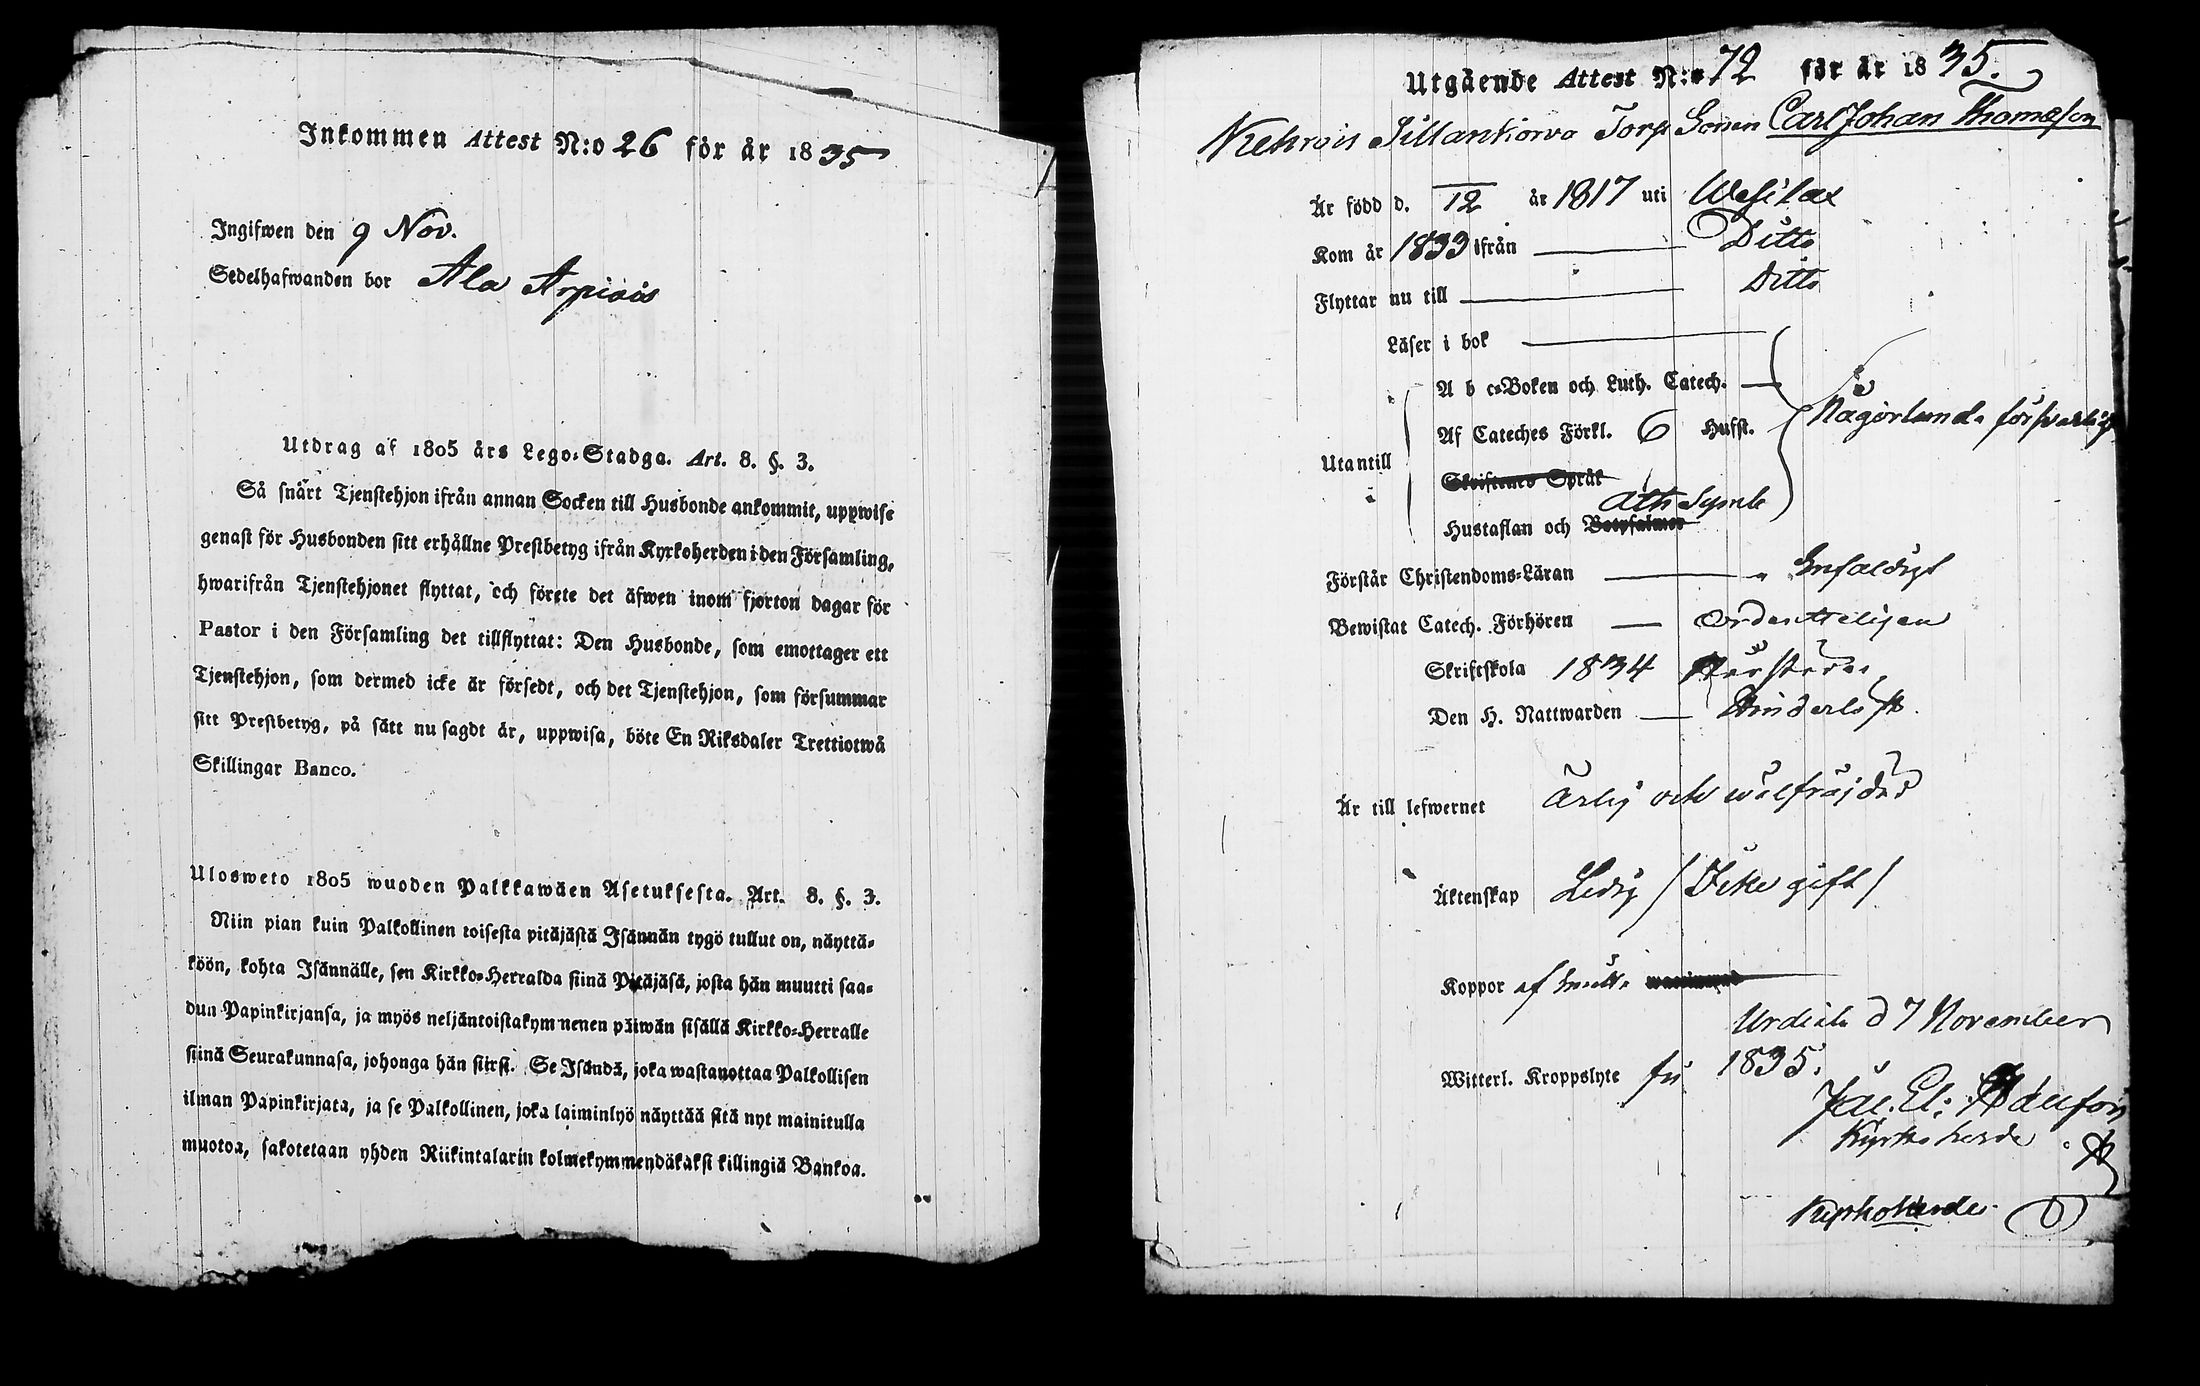 Inkommen Attest N:o 26 för år 1835
Ingifwen den 9 Nov.
Sedelhafwanden bor Ala Arpiais
Utdrag af 1805 års Lego-Stadga. Art. 8. §. 3.
Så snårt Tjenstehjon ifrån annan Socken till Husbonde ankommit, uppwise
genast för Husbonden sitt erhållne Prestbetyg ifrån Kyrkoherden i den Församling,
hwarifrån Tjenstehjonet flyttat, och förete det äfwen inom fjorton dagar för
Pastor i den Församling det tillflyttat: Den Husbonde, som emottager ett
Tjenstehjon, som dermed icke är försedt, och det Tjenstehjon, som försummar
sitt Prestbetyg, på sätt nu sagdt är, uppwisa, böte En Riksdaler Trettiotwå
Skillingar Banco.
Ulosweto 1805 wuoden Palkkawäen Asetuksesta. Art. 8. §. 3.
Niin pian kuin Palkollinen toisesta pitäjästä Isännän tygö tullut on, näyttä-
köön, kohta Isännälle, sen Kirkko-Herralda siinä Pitäjäsä, josta hän muutti saa-
dun Papinkirjansa, ja myös neljäntoistakymmenen päiwän sisällä Kirkko-Herralle
siinä Seurakunnasa, johonga hän siirsi. Se Isändä, joka wastanottaa Palkollisen
ilman Papinkirjata, ja se Palkollinen, joka laiminlyö näyttää sitä nyt mainitulla
muotoa, sakotetaan yhden Riikintalarin kolmekymmendäkaksi killingiä Bankoa.
Utgående Attest N:o 72 för år 1835.
Sillankorva Torp Sonen Carl Johan Thomasson
Är född d. 12 år 1817 uti Wesilax
Kom år 1833 ifrån Ditto
Flyttar nu till Ditto
Läser i bok
A b c-Boken och Luth. Catech.
Af Cateches Förkl. 6 Hufst. Någorlunda försvarligt
Utantill
Skriftenes Språk
Ath Symb
Hustaflan och Botpsalmer
Förstår Christendoms-Läran Enfaldigt
Bewistat Catech. Förhören Ordenteligen
Skriftskola 1834
Den H. Nattwarden Hinderlöst
Är till lefwernet ärlig och wälfräjdad
Äktenskap Ledig / Icke gift /
Koppor af
Urdiala d 7 November
Witterl. Kroppslyte fri 1835.
Jac. El:
Kyrkoherde
Kyrkoherde